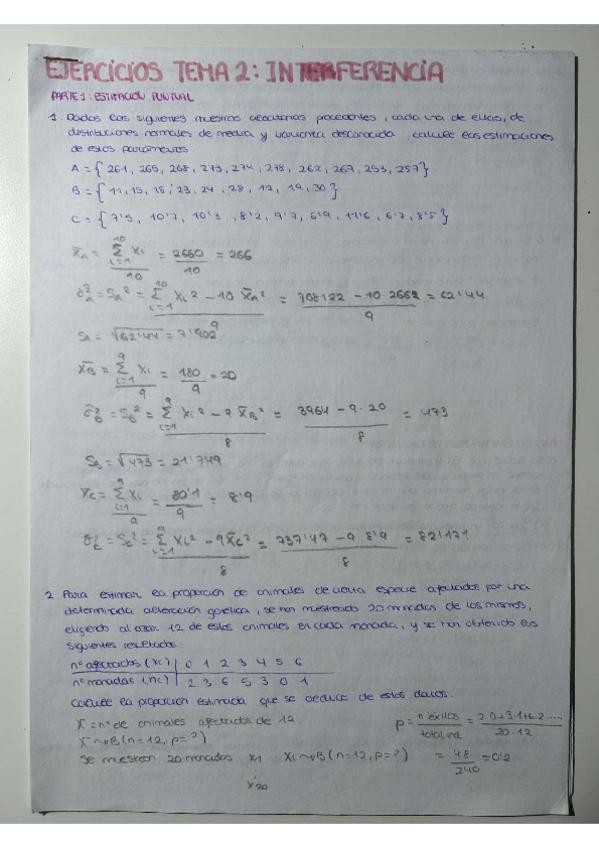 EJERCICIOS TEMA 2: INTERFERENCIA
PARTE 1: ESTIMACIÓN PUNTUAL
1. Dadas las siguientes muestras aleatorias procedentes, cada una de ellas, de
distribuciones normales de media y varianza desconocida, calcule las estimaciones
de estos parámetros
A = {261, 265, 268, 273, 274, 278, 262, 267, 253, 257}
B = {11, 15, 18, 23, 24, 28, 12, 19, 30}
C = {7'5, 10'7, 10'3, 8'2, 9'7, 6'9, 11'6, 6'7, 8'5}
x̄A = Σ(i=1, 10) xi / 10 = 2660 / 10 = 266
σ̂²A = SA² = (Σ(i=1, 10) xi² - 10 x̄A²) / 9 = (708122 - 10·266²) / 9 = 62'44
SA = √62'44 = 7'902
x̄B = Σ(i=1, 9) xi / 9 = 180 / 9 = 20
σ̂²B = SB² = (Σ(i=1, 9) xi² - 9 x̄B²) / 8 = (3964 - 9·20) / 8 = 473
SB = √473 = 21'749
x̄C = Σ(i=1, 9) xi / 9 = 80'1 / 9 = 8'9
σ̂²C = SC² = (Σ(i=1, 9) xi² - 9x̄C²) / 8 = (737'47 - 9 8'9) / 8 = 82'171
2. Para estimar la proporción de animales de cierta especie afectados por una
determinada alteración genética, se han muestreado 20 manadas de los mismos,
eligiendo al azar 12 de estos animales en cada manada, y se han obtenido los
siguientes resultados
nº afectados (xi) 0 1 2 3 4 5 6
nº manadas (ni) 2 3 6 5 3 0 1
Calcule la proporción estimada que se deduce de estos datos.
X = nº de animales afectados de 12
X ~ B(n=12, p=?)
p = nº éxitos / total ind. = 2·0+3·1+6·2..... / 20·12
Se muestrean 20 manadas x1 Xi ~ B(n=12, p=?) = 48 / 240 = 0'2
x20